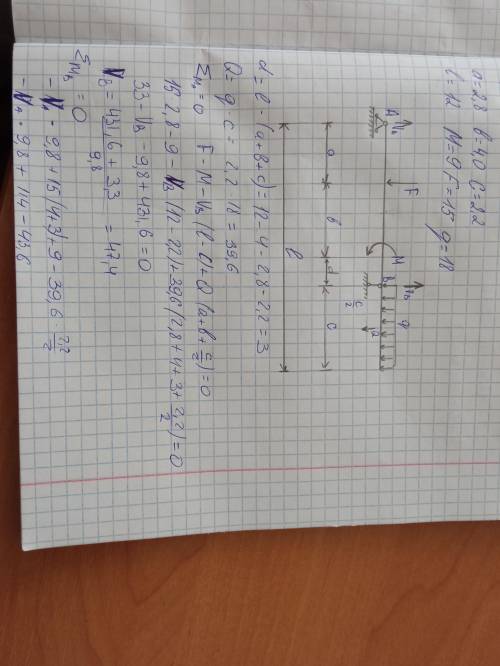 a=2,8 b=40 c=2,2
l=12 M=9 F=15 q=18
A V_A F M b V_b q
Q
c/2
a b d c
l
d = l - (a+b+c) = 12 - 4 - 2,8 - 2,2 = 3
Q = q · c = 2,2 · 18 = 39,6
ΣM_A = 0 F - M - V_B (l - c) + Q (a+b+c/2) = 0
15·2,8 - 9 - V_B (12 - 2,2) + 39,6 (2,8 + 4 + 3 + 2,2/2) = 0
33 - V_B - 9,8 + 431,6 = 0
V_B = (431,6 + 33)/9,8 = 47,4
ΣM_b = 0
- V_A · 9,8 + 15 (4+3) + 9 - 39,6 · 2,2/2
- V_A · 9,8 + 114 - 43,6